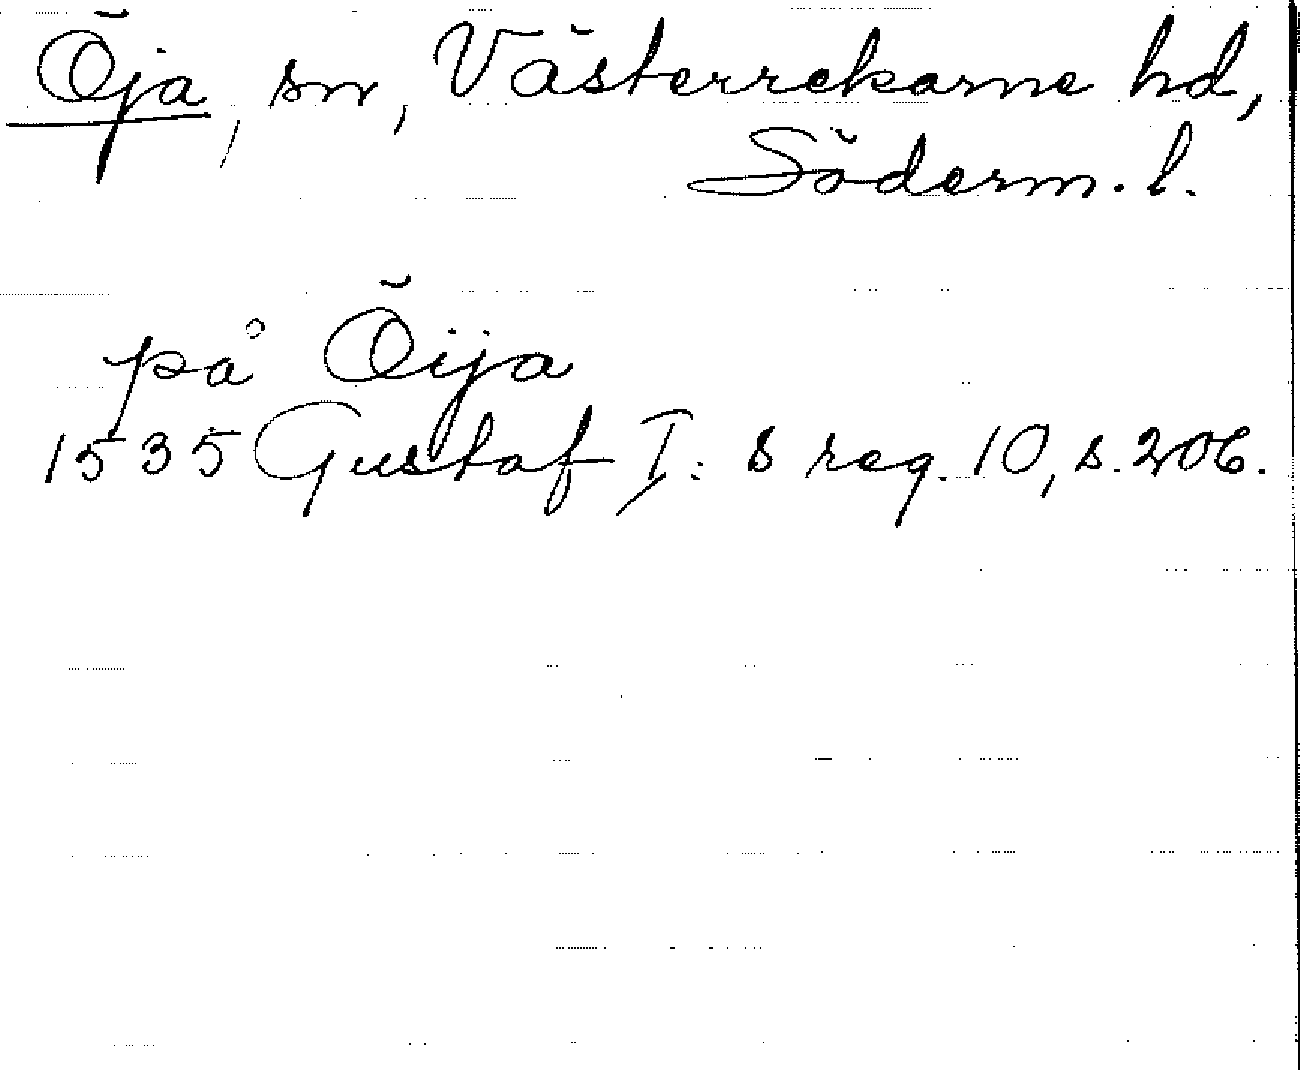 Öja, sn, Västerrekarne hd,
Söderm. l.
på Öija
1535 Gustaf I: s reg. 10, s. 206.